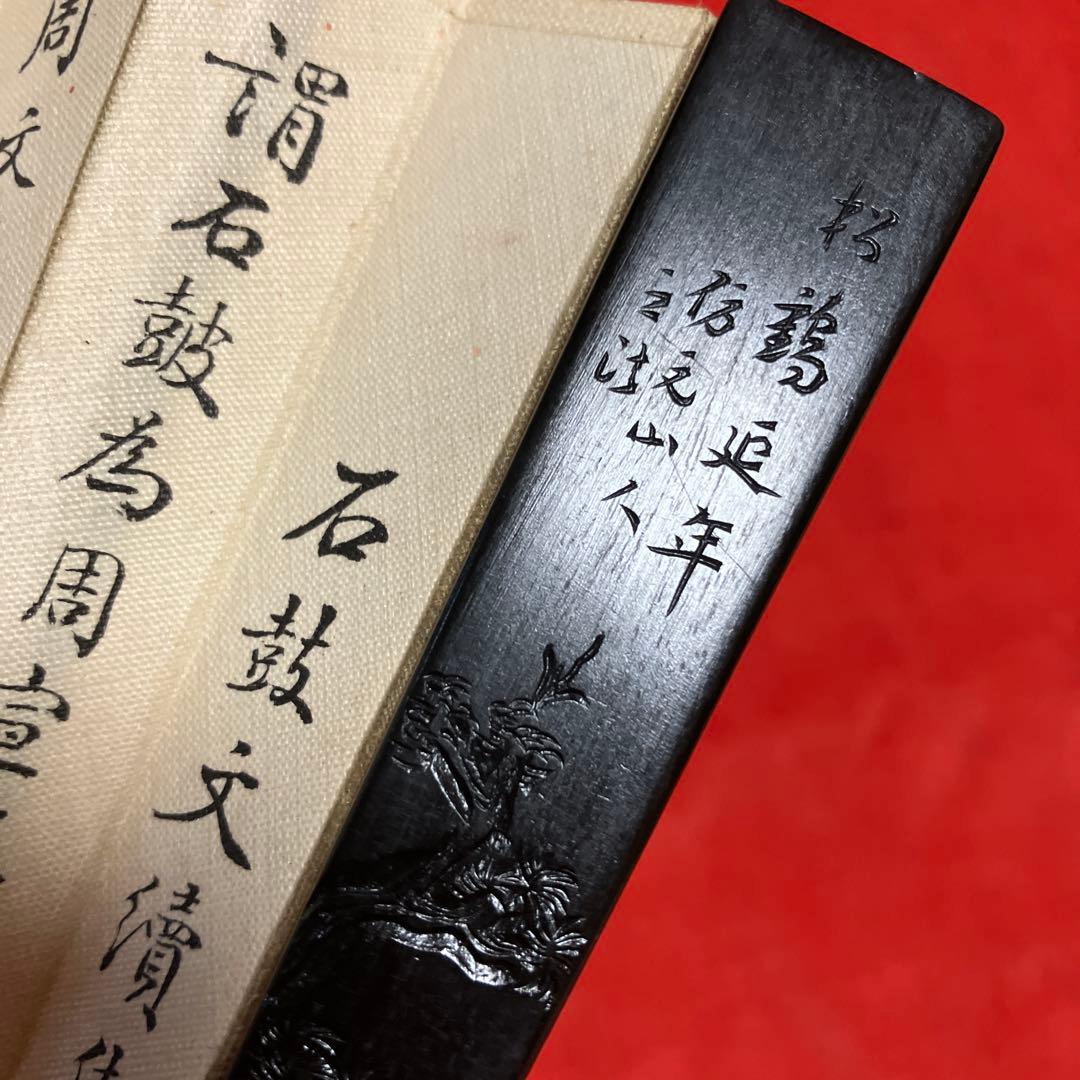 松鶴延年
仿文山人
之法
石鼓文續
謂石鼓為周宣
周文